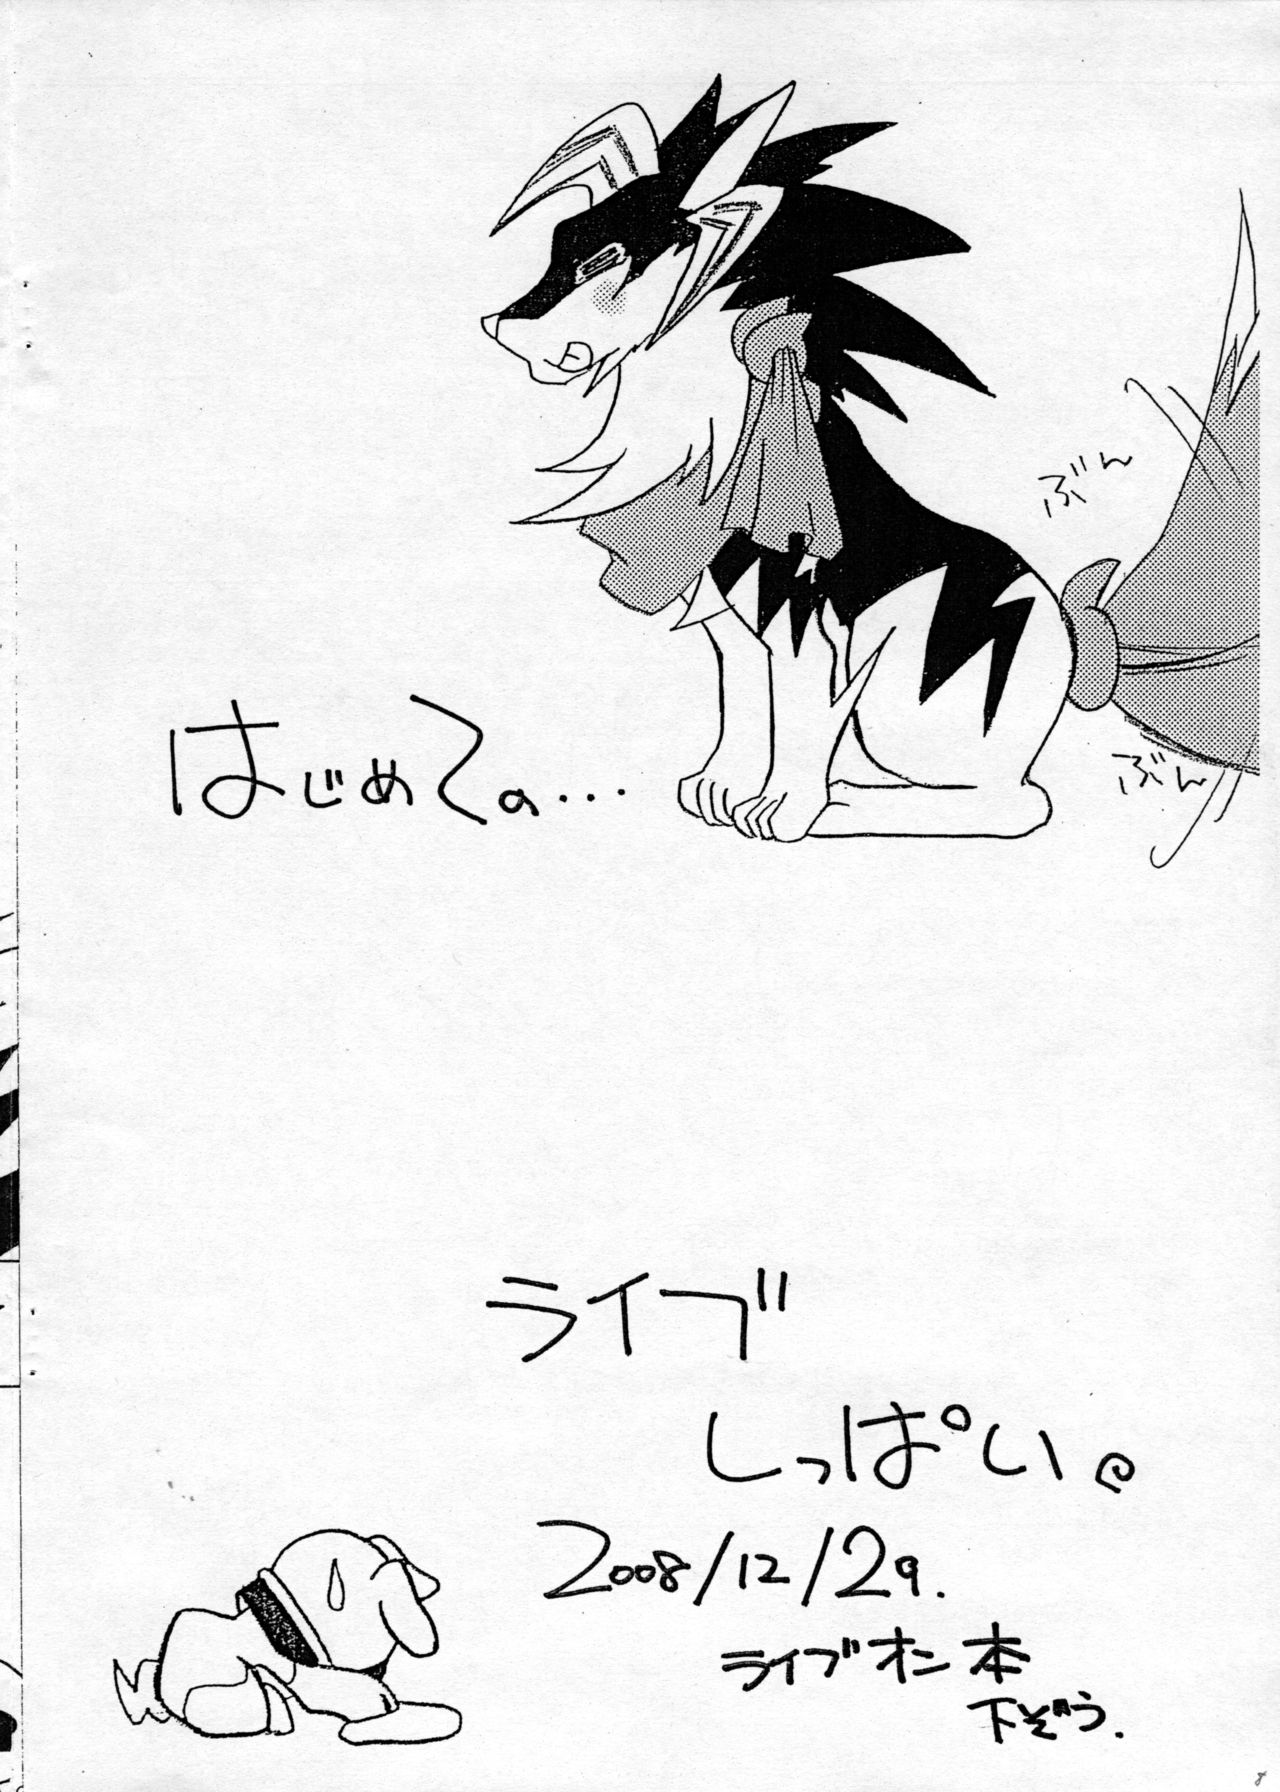 ぶん
ぶん
はじめての...
ライブ
しっぱい。
2008/12/29.
ライブオン本
下ぞう.
8